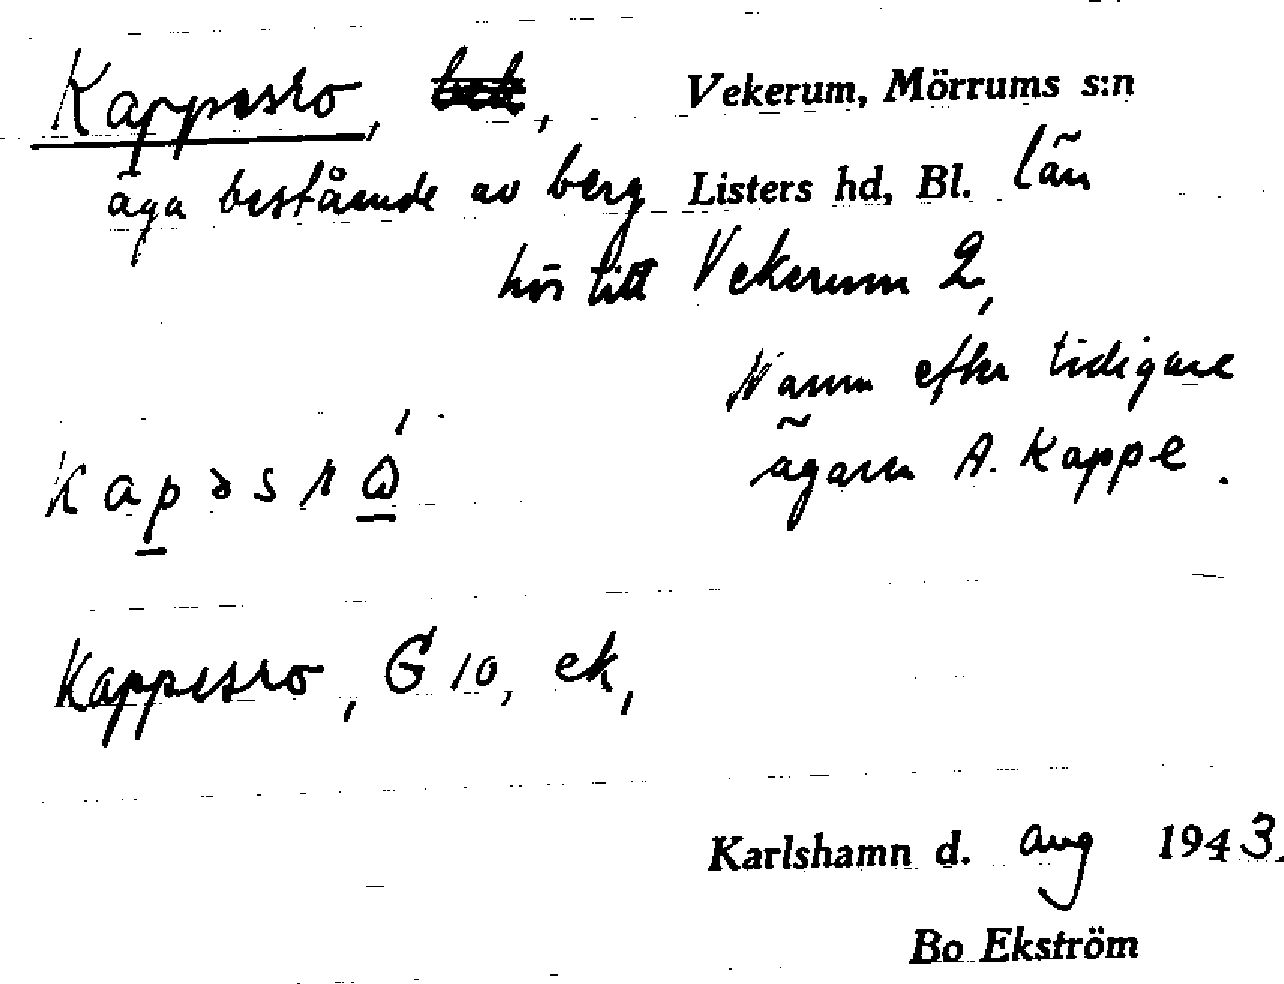 Kappesro, , Vekerum, Mörrums s:n
äga bestående av berg Listers hd, Bl. län
hör till Vekerum 2,
Namn efter tidigare
ägaren A. Kappe.
kapəsrώ̲
Kappesro, G 10, ek,
Karlshamn d. aug 1943.
Bo Ekström